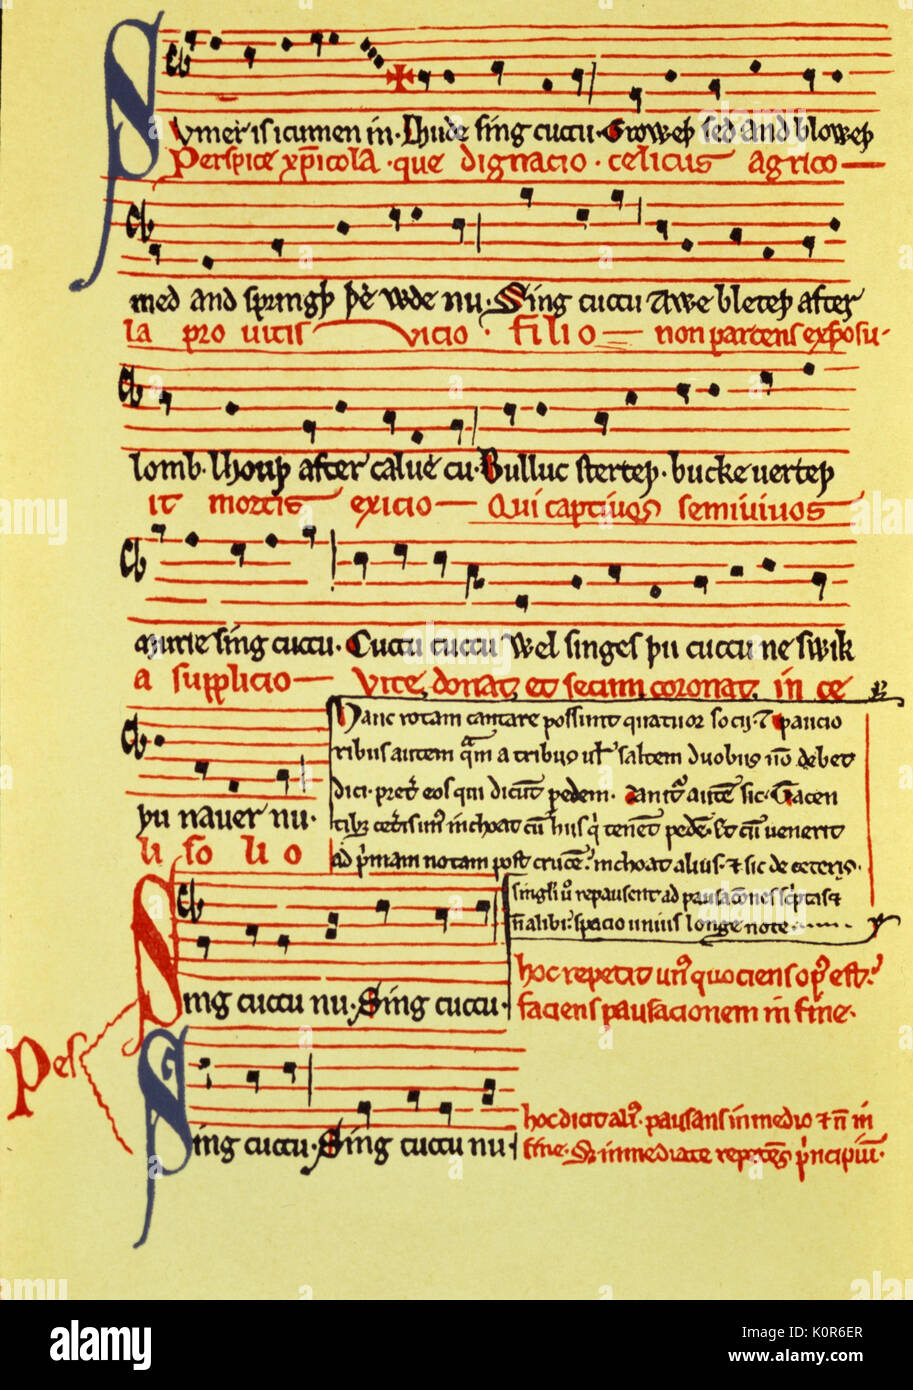 Sumer is icumen in · Lhude sing cuccu · Groweþ sed and bloweþ
Perspice xp̄icola · que dignacio · celicus agrico—
med and springþ þe wde nu · Sing cuccu Awe bleteþ after
la pro uitis vicio · filio — non parcens exposu-
lomb · lhouþ after calue cu · Bulluc sterteþ · bucke uerteþ
it mortis exicio — Qui captiuos semiuiuos
Murie sing cuccu · Cuccu cuccu Wel singes þu cuccu ne swik
a supplicio — Vite donat et secum coronat in ce
þu nauer nu ·
li solio
Hanc rotam cantare possunt quatuor socij · A paucio
ribus autem qᵃm a tribus ul' saltem duobus nō debet
dici · pret̄ eos qui dicūt pedem · Canit᷒ autē sic · Tacen
tib᷒ cet̄is un᷒ inchoat cū hiis qⁱ tenēt pedē · Et cū uenerit
ad pⁱmam notam post crucē · inchoat alius · et sic de ceteris ·
singli u᷒ repausent ad pausacōnes scⁱptas et
ñ alibi · spacio unius longe note
Pes
Sing cuccu nu · Sing cuccu ·
hoc repetit un᷒ quociens op᷒ est ·
faciens pausacionem in fine ·
Sing cuccu · Sing cuccu nu ·
hoc dicit ali᷒ · pausans in medio et ñ in
fine · Sꝫ inmediate repetēs pⁱncipiū ·
alamy
alamy
Image ID: K0R6ER
www.alamy.com